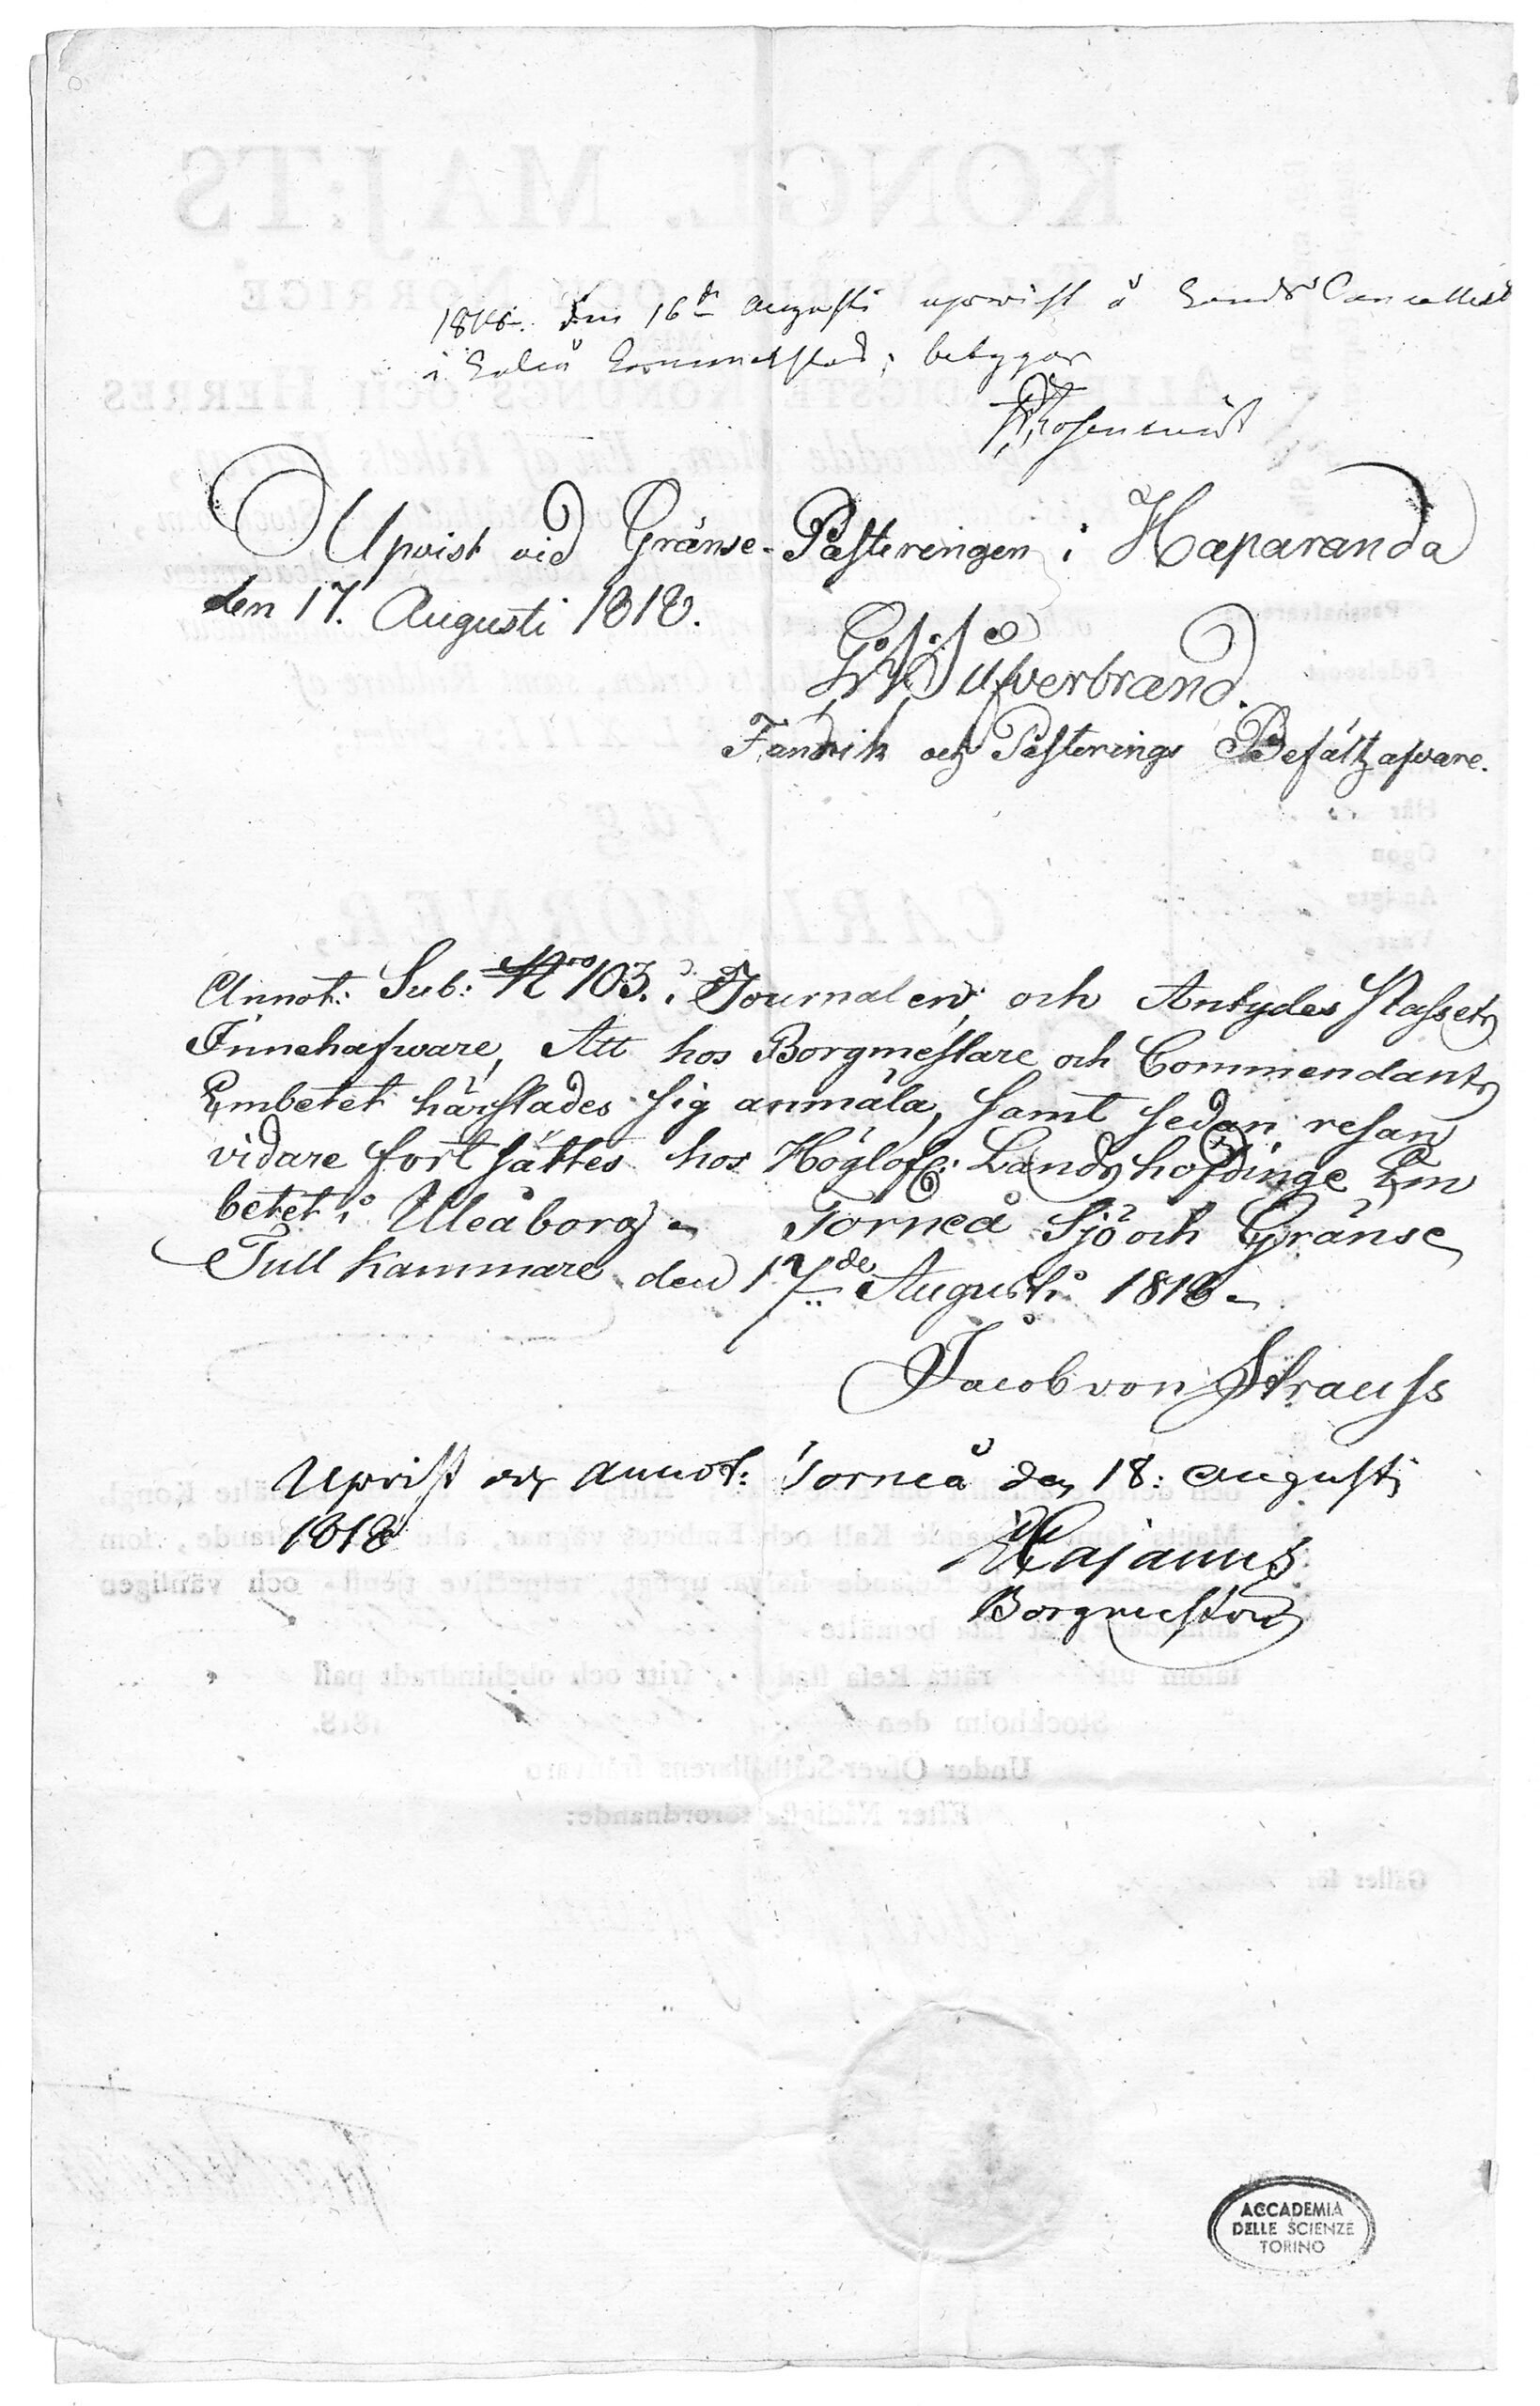 1818. den 16de Augusti upvist å Lands Cancelliet
i Luleå betygar
Upvist vid Gränse-Posteringen i Haparanda
den 17. Augusti 1818.
Silfverbrand.
Fändrik och Posterings Befälhafvare.
Annot: Sub: Nro 103. i Journalen, och Antydes Passets
Innehafware, Att hos Borgmestare och Commendants
Embetet härstädes sig anmäla, samt sedan resan
vidare fortsättes hos Höglofl: Landshöfdinge Em
betet i Uleåborg. Torneå Sjö och Gränse
Tull Kammare den 17de Augusti 1818.
Jacob von Strauss
Upvist och annot: Torneå den 18: Augusti
1818
Cajanus
Borgmestare
ACCADEMIA
DELLE SCIENZE
TORINO